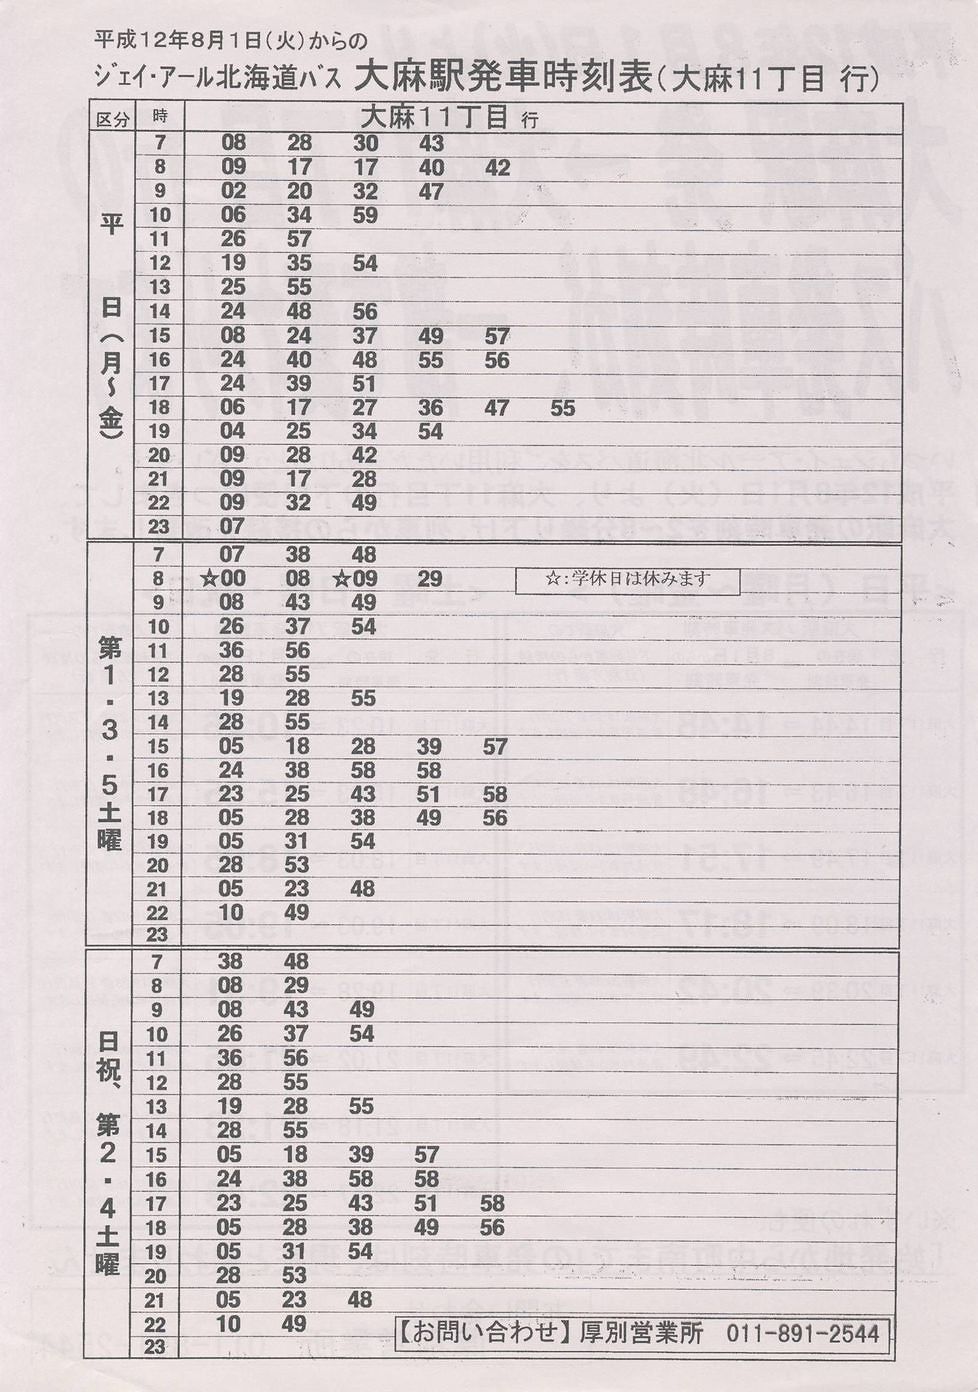 平成12年8月1日(火)からの
ジェイ・アール北海道バス 大麻駅発車時刻表(大麻11丁目 行)
区分 時 大麻11丁目 行
平日(月~金)
7 08 28 30 43
8 09 17 17 40 42
9 02 20 32 47
10 06 34 59
11 26 57
12 19 35 54
13 25 55
14 24 48 56
15 08 24 37 49 57
16 24 40 48 55 56
17 24 39 51
18 06 17 27 36 47 55
19 04 25 34 54
20 09 28 42
21 09 17 28
22 09 32 49
23 07
第1・3・5土曜
7 07 38 48
8 ☆00 08 ☆09 29 ☆:学休日は休みます
9 08 43 49
10 26 37 54
11 36 56
12 28 55
13 19 28 55
14 28 55
15 05 18 28 39 57
16 24 38 58 58
17 23 25 43 51 58
18 05 28 38 49 56
19 05 31 54
20 28 53
21 05 23 48
22 10 49
23
日祝、第2・4土曜
7 38 48
8 08 29
9 08 43 49
10 26 37 54
11 36 56
12 28 55
13 19 28 55
14 28 55
15 05 18 39 57
16 24 38 58 58
17 23 25 43 51 58
18 05 28 38 49 56
19 05 31 54
20 28 53
21 05 23 48
22 10 49
23
【お問い合わせ】厚別営業所 011-891-2544